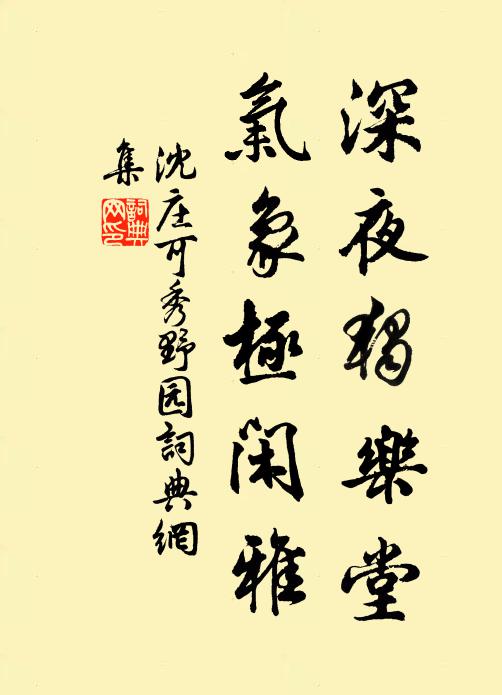 深夜獨樂堂
氣象極閑雅
沈庄可秀野园詞典網
集
詞典網印